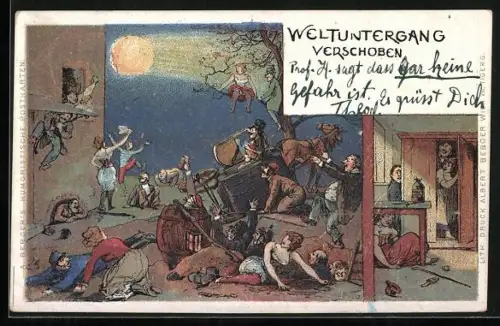 WELTUNTERGANG
VERSCHOBEN
Prof. F. sagt dass gar keine
Gefahr ist. Es grüsst Dich
Theod.
A. BERGER'S HUMORISTISCHE POSTKARTEN.
LITH. DRUCK ALBERT BERGER WIEN